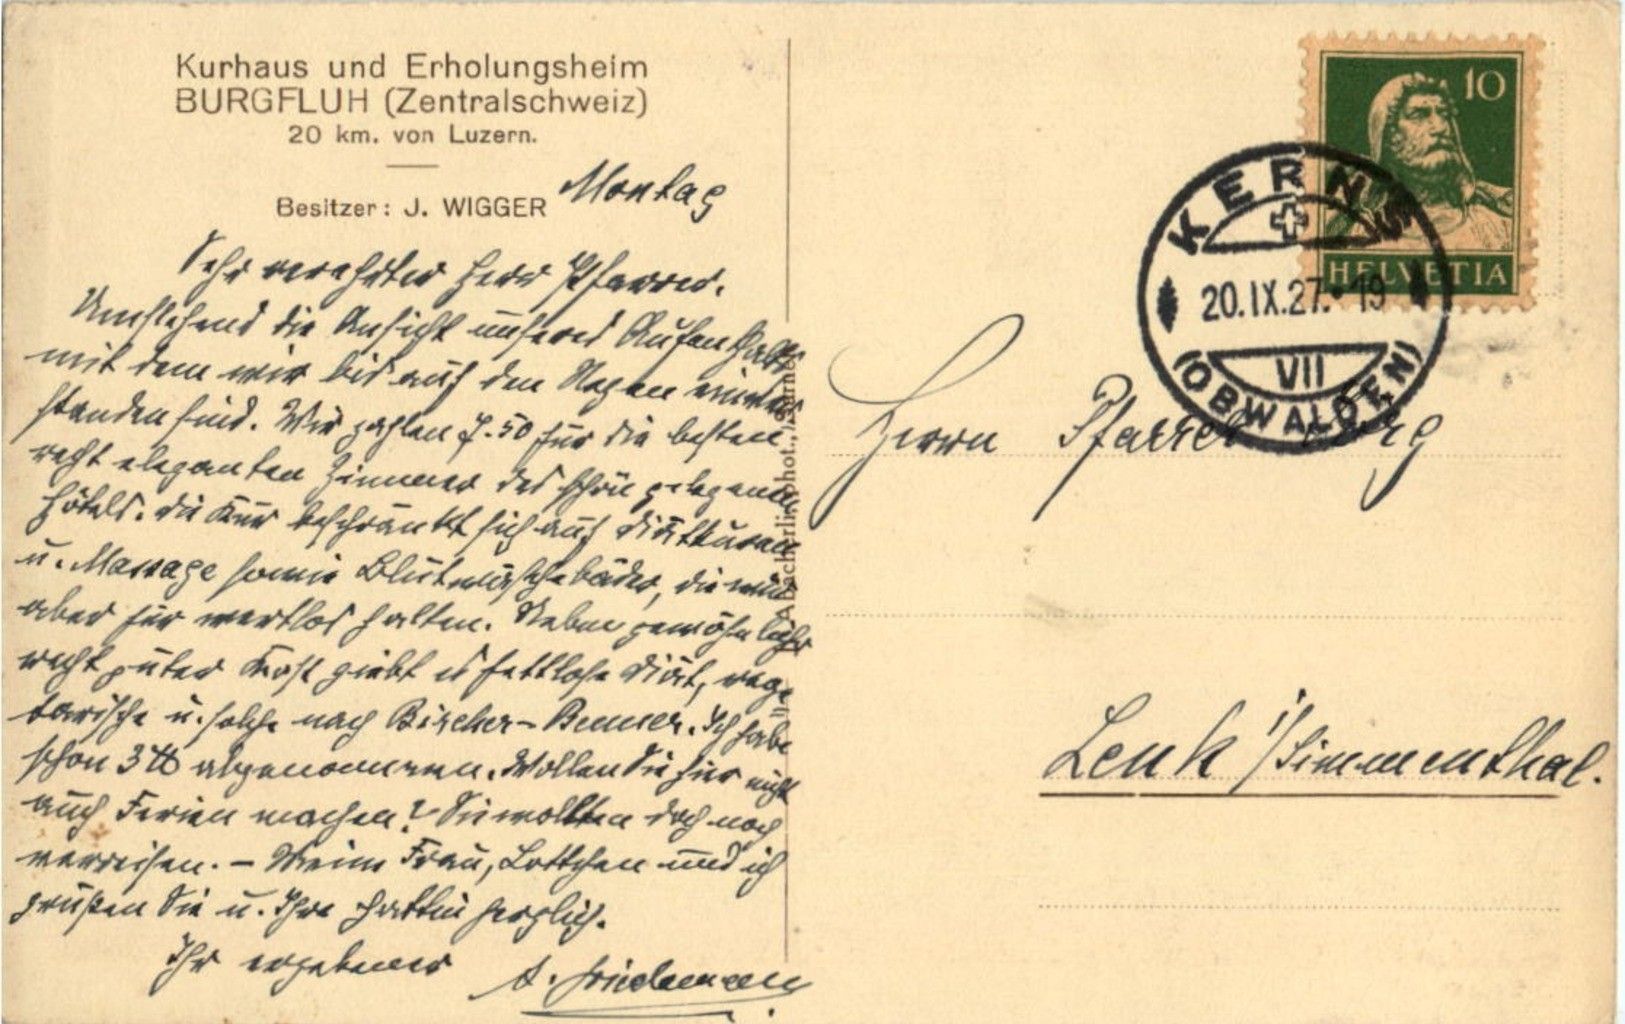 Kurhaus und Erholungsheim
BURGFLUH (Zentralschweiz)
20 km. von Luzern.
Besitzer: J. WIGGER
Montag
Sehr verehrter Herr Pfarrer.
Umstehend die Ansicht unseres Aufenthalts
mit dem wir bis auf den Regen einver
standen sind. Wir zahlen 7.50 für die besten
recht eleganten Zimmer des schön gelegenen
Hôtels. Die Kur beschränkt sich auf Diätkuren
u. Massage sowie Blutwäschebäder, die wir
aber für wertlos halten. Neben gewöhnlicher
recht guter Kost giebt es fettlose Diät, vege
tarische u. solche nach Bircher-Benner. Ich habe
schon 3 ℔ abgenommen. Wollen Sie hier nicht
auch Ferien machen? Sie wollten doch noch
verreisen. – Meine Frau, Lottchen und ich
grüßen Sie u. Ihre Gattin herzlich.
Ihr ergebener
A. Friedemann
Abächerli, phot., Sarnen
10
HELVETIA
KERNS
20.IX.27.-19
VII
(OBWALDEN)
Herrn Pfarrer
Lenk i/Simmenthal.